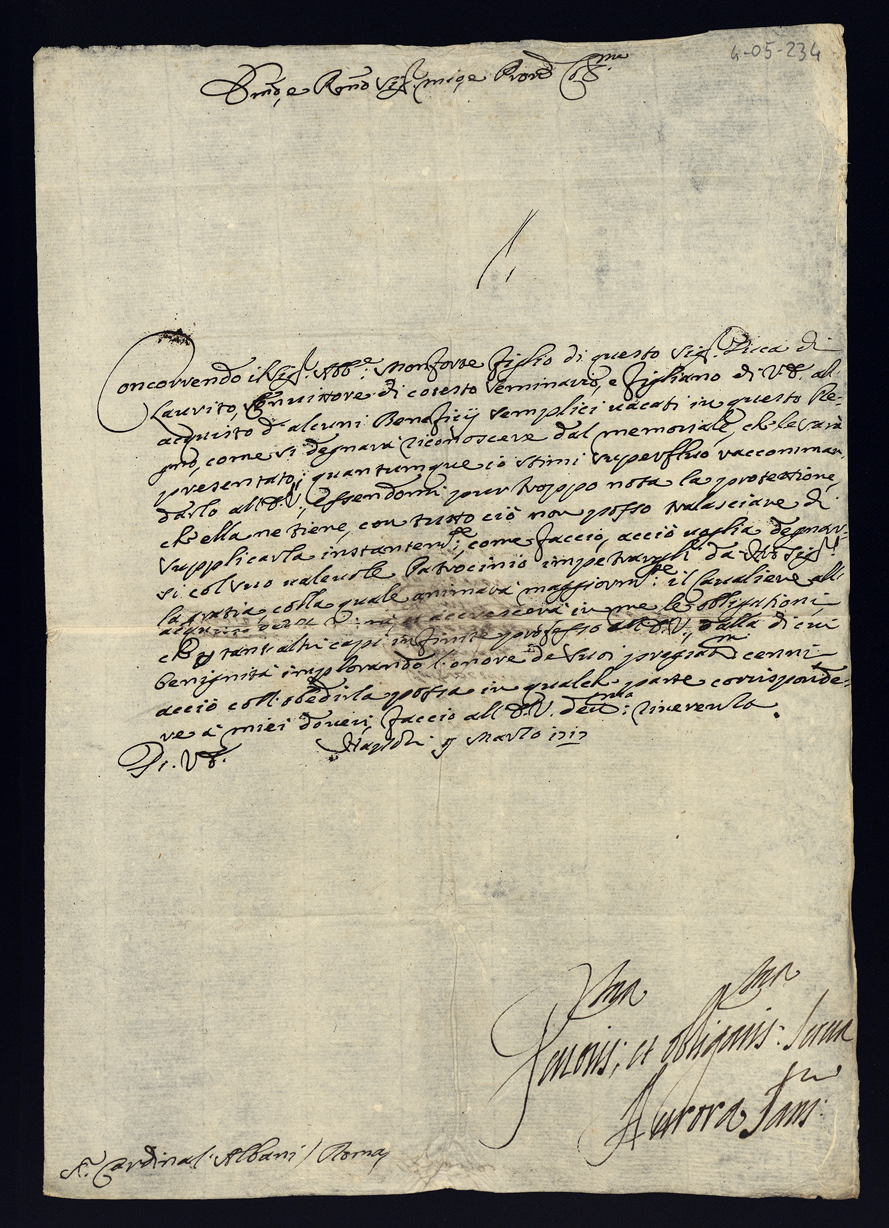 4-05-234
Em̃o, e Rem̃o Sig.r mio, e Pron̄e Col.mo
Concorrendo il Sig.r Abb.e Monforte figlio di questo Sig.r Duca di
Laurito, Convittore di cotesto Seminario, e figliano di V.E. al
acquisto d'alcuni Beneficij semplici vacati in questo Re-
gno, come si degnarà riconoscere dal memoriale, che le sarà
presentato; quantunque io stimi superfluo raccoman-
darlo all'E.V., essendomi pur troppo nota la protettione,
ch'ella ne tiene, con tutto ciò non posso tralasciare di
supplicarla instantem.te, come faccio, acciò voglia degnar-
si col suo valevole Patrocinio impetrargli da N.ro Sig.re
la gratia, colla quale animarà maggiorm.te il Cavaliere all'
et accrescerà in me le obligationi,
che p tant'altri capi infinite professo all'E.V., dalla di cui
benignità implorando l'onore de suoi pregiat.mi cenni,
acciò coll'obedirla possa in qualche parte corrisponde-
re à miei doveri, faccio all'E.V. um.ma riverenza.
Di V.E. Napoli 9 Marzo 1717
ma ma
Devotis: et obligatis: Serva
Aurora Sans:
S.r Cardinal Albani / Roma